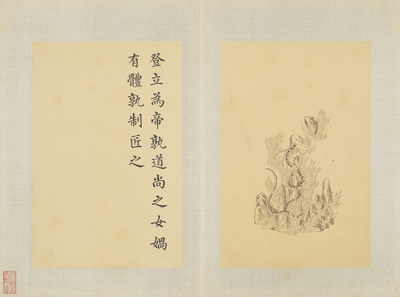 登立為帝孰道尚之女媧
有體孰制匠之